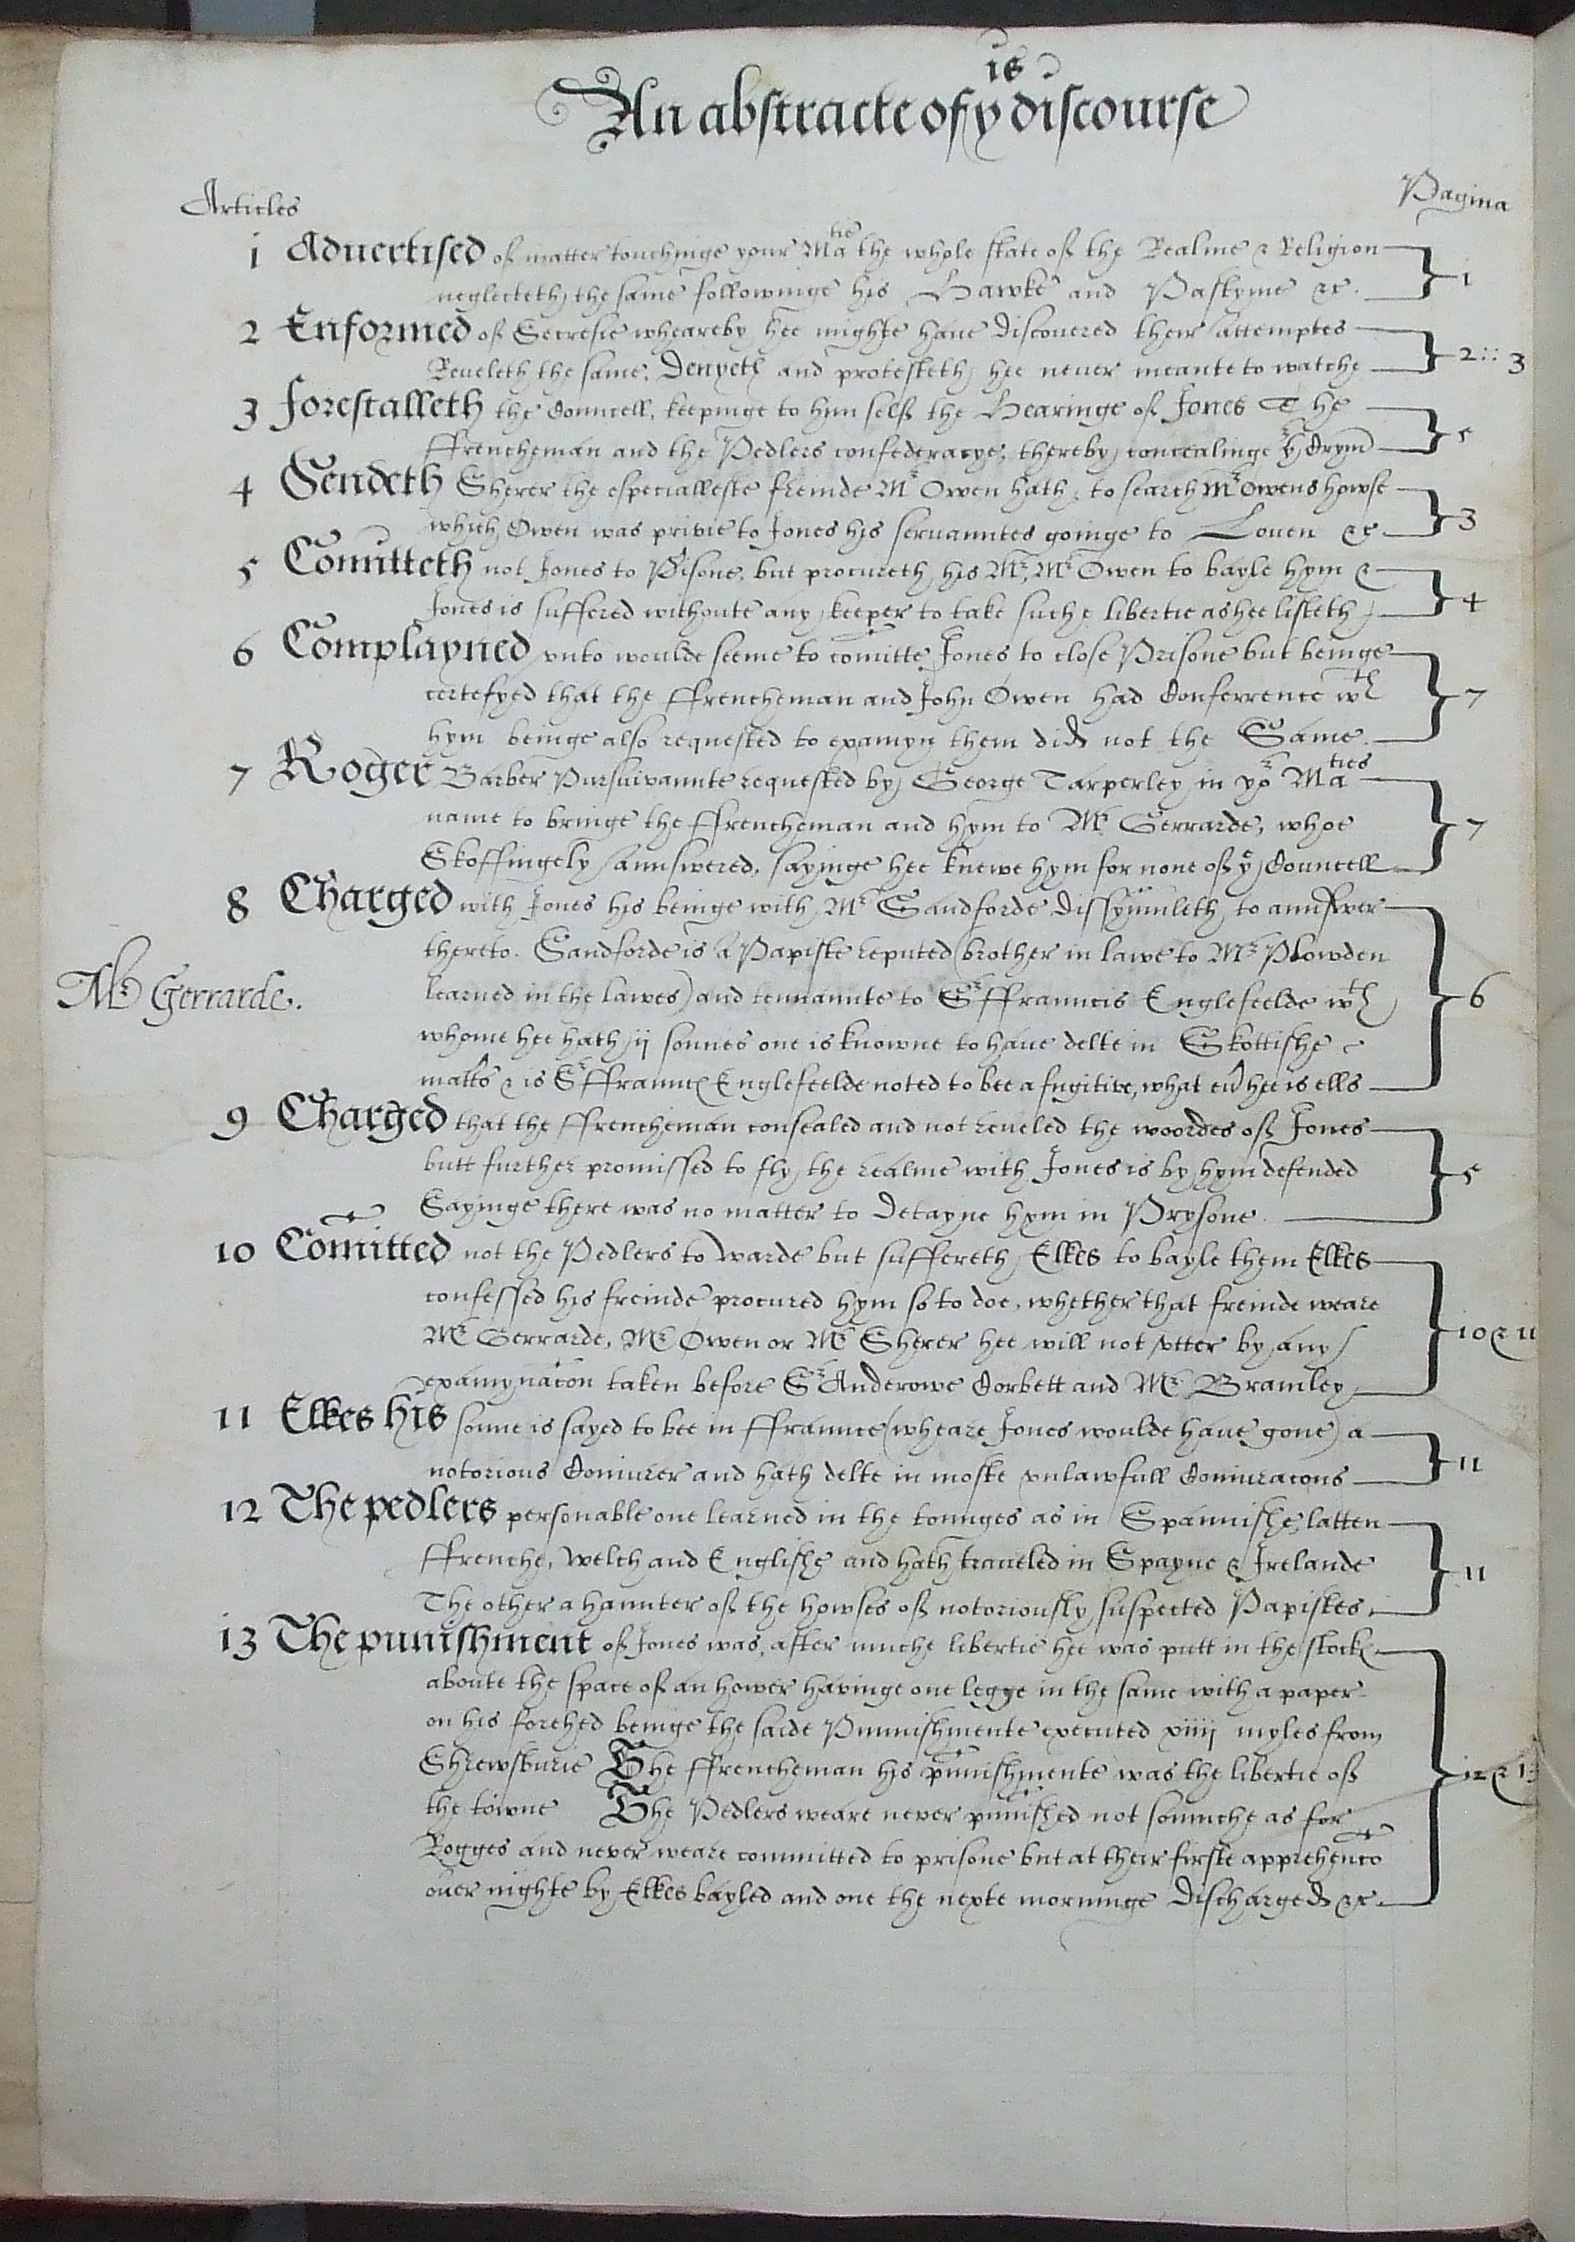 An abstracte of yis discourse
Articles Pagina
1 Aduertised of matter touchinge your Matie the whole state of the Realme & Religion
neglecteth the same followinge his Hawke and Pastyme &c. 1
2 Enformed of Secresie wheareby hee mighte haue discouered their attemptes
Reueleth the same, denyeth and protesteth hee neuer meante to watche 2::3
3 Forestalleth the Councell, keepinge to hym self the Hearinge of Jones The
ffrencheman and the Pedlers confederacye, thereby concealinge ye Crym 5
4 Sendeth Sherer the especialleste freinde Mr Owen hath, to search Mr Owens howse
which Owen was privie to Jones his seruauntes goinge to Louen &c 3
5 Comitteth not Jones to Pisone, but procureth his Mr, Mr Owen to bayle hym &
Jones is suffered withoute any keeper to take suche libertie as hee listeth 4
6 Complayned vnto woulde seeme to comitte Jones to close Prisone but beinge
certefyed that the ffrencheman and John Owen had Conferrence wth
hym beinge also requested to examyn them did not the Same. 7
7 Roger Barber Pursuivannte requested by George Tarperley in yor Maties
name to bringe the ffrencheman and hym to Mr Gerrarde, whoe
Skoffingely annswered, sayinge hee knewe hym for none of ye Councell 7
8 Charged with Jones his beinge with Mr Sandforde dissymuleth to annswer
thereto. Sandforde is a Papiste reputed (brother in lawe to Mr Plowden
Mr Gerrarde.
learned in the lawes) and tennannte to Sr ffranncis Englefeelde wth
whome hee hath ij sonnes one is knowne to haue delte in Skottishe
matters & is Sr ffrannces Englefeelde noted to bee a fugitive, what eu hee is ells 6
9 Charged that the ffrencheman consealed and not reueled the woordes of Jones
butt further promissed to fly the realme with Jones is by hym defended
Sayinge there was no matter to detayne hym in Prysone. 5
10 Comitted not the Pedlers to warde but suffereth Elkes to bayle them Elkes
confessed his freinde procured hym so to doe, whether that freinde weare
Mr Gerrarde, Mr Owen or Mr Sherer hee will not vtter by any
examynacon taken before Sr Anderowe Corbett and Mr Bramley 10 & 11
11 Elkes his sonne is sayed to bee in ffrannce (wheare Jones woulde haue gone) a
notorious Coniurer and hath delte in moste vnlawfull Coniuracons 11
12 The pedlers personable one learned in the tounges as in Spannishe, latten
ffrenche, Welch and Englishe and hath traueled in Spayne & Irelande
The other a haunter of the howses of notoriously suspected Papistes. 11
13 The punishment of Jones was, after muche libertie hee was putt in the stockes
aboute the space of an hower havinge one legge in the same with a paper
on his forehed beinge the saide Punnishmente executed xiiij myles from
Shrewsburie The ffrencheman his punishmente was the libertie of
the towne The Pedlers weare never punished not somuche as for
Rogges and never weare committed to prisone but at their firste apprehencō
ouer nighte by Elkes bayled and one the nexte morninge discharged &c. 12 & 13